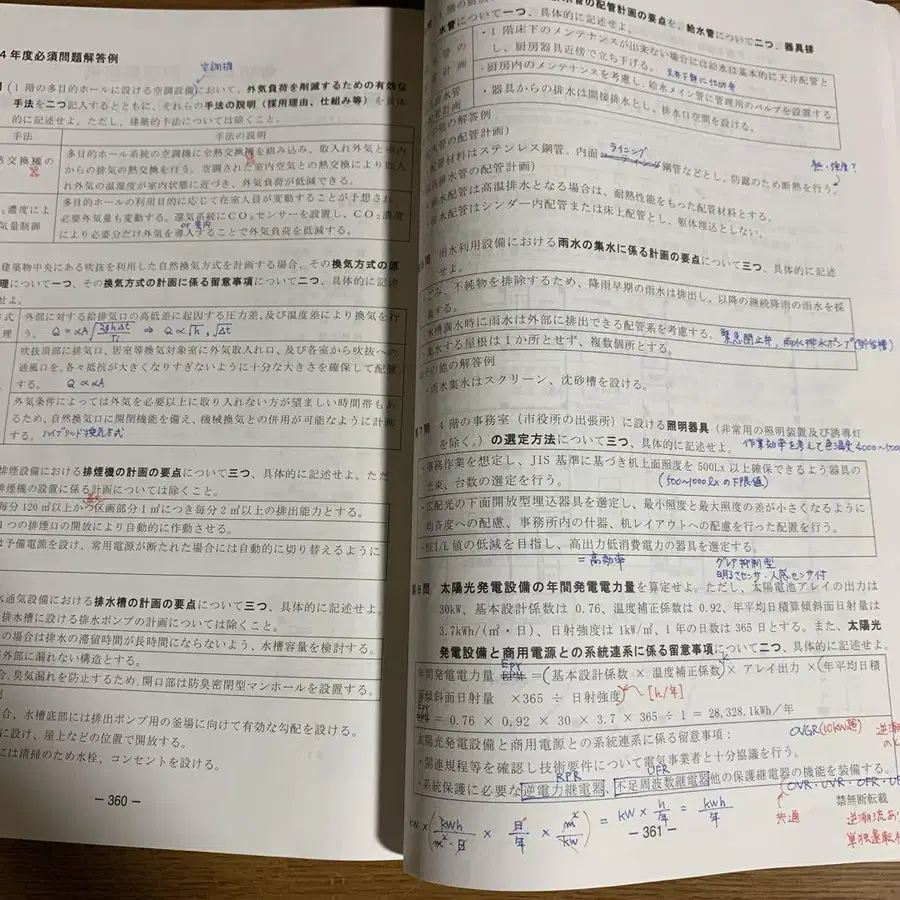 ４年度必須問題解答例
空調機
(１階の多目的ホールに設ける空調設備において，外気負荷を削減するための有効な
手法を二つ記入するとともに，それらの手法の説明（採用理由，仕組み等）を具体
的に記述せよ。ただし，建築的手法については除くこと。
手法
手法の説明
熱交換機の
多目的ホール系統の空調機に全熱交換機を組み込み，取入れ外気と室内
からの排気の熱交換を行う。空調された室内空気との熱交換により取入
れ外気の温湿度が室内状態に近づき，外気負荷が低減できる。
濃度によ
気量制御
多目的ホールの利用目的に応じて在室人員が変動することが予想され，
必要外気量も変動する。還気系統にCO₂センサーを設置し，CO₂濃度
or 室内
により必要分だけ外気を導入することで外気負荷を低減する。
建築物中央にある吹抜を利用した自然換気方式を計画する場合，その換気方式の原
理について一つ，その換気方式の計画に係る留意事項について二つ，具体的に記述
せよ。
式
理
外部に対する給排気口の高低差に起因する圧力差，及び温度差により換気を行
う。
吹抜頂部に排気口，居室等換気対象室に外気取入れ口，及び各室から吹抜への
通風口を，各々抵抗が大きくなりすぎないように十分な大きさを確保して配置
する。 Q ∝ αA
外気条件によっては外気を必要以上に取り入れない方が望ましい時間帯もあ
るため，自然換気口に開閉機能を備え，機械換気との併用が可能なように計画
する。 ハイブリッド換気方式
排煙設備における排煙機の計画の要点について三つ，具体的に記述せよ。ただ
排煙機の設置に係る計画については除くこと。
毎分120㎥以上かつ区画部分１㎡につき毎分２㎥以上の排出能力とする。
１つの排煙口の開放により自動的に作動させる。
は予備電源を設け，常用電源が断たれた場合には自動的に切り替えるように
水通気設備における排水槽の計画の要点について三つ，具体的に記述せよ。
排水槽に設ける排水ポンプの計画については除くこと。
の場合は排水の滞留時間が長時間にならないよう，水槽容量を検討する。
外部に漏れない構造とする。
合，臭気漏れを防止するため，開口部は防臭密閉型マンホールを設置する。
合，水槽底部には排出ポンプ用の釜場に向けて有効な勾配を設ける。
に設け，屋上などの位置で開放する。
には清掃のため水栓，コンセントを設ける。
― 360 ―
水管の配管計画の要点を，給水管について二つ，器具排
水管について一つ，具体的に記述せよ。
・１階床下のメンテナンスが出来ない場合には給水は基本的に天井配管と
し，厨房器具近傍で立ち下げる。
・厨房内のメンテナンスを考慮し，給水メイン管に管理用のバルブを設置する
・器具からの排水は間接排水とし，排水口空間を設ける。
の他の解答例
水管の配管計画）
ライニング
配管材料はステンレス鋼管，内面コーティング鋼管などとし，防露のため断熱を行う。
排水管の配管計画）
排水配管は高温排水となる場合は，耐熱性能をもった配管材料とする。
排水配管はシンダー内配管または床上配管とし，躯体埋込としない。
６問 雨水利用設備における雨水の集水に係る計画の要点について三つ，具体的に記述
せよ。
ごみ，不純物を排除するため，降雨早期の雨水は排出し，以降の継続降雨の雨水を採
取する。
水槽満水時に雨水は外部に排出できる配管系を考慮する。 緊急閉止弁，雨水排水ポンプ(貯留槽)
集水する屋根は１か所とせず，複数個所とする。
の他の解答例
・雨水集水はスクリーン，沈砂槽を設ける。
第７問 ４階の事務室（市役所の出張所）に設ける照明器具（非常用の照明装置及び誘導灯
を除く。）の選定方法について三つ，具体的に記述せよ。 作業効率を考えて色温度4000~500
・事務作業を想定し，JIS 基準に基づき机上面照度を 500Lx 以上確保できるよう器具の
光束，台数の選定を行う。 (500~1000lxの下限値)
・広配光の下面開放型埋込器具を選定し，最小照度と最大照度の差が小さくなるように
均斉度への配慮，事務所内の什器，机レイアウトへの配慮を行った配置を行う。
・BEI/L 値の低減を目指し，高出力低消費電力の器具を選定する。
= 高効率
グレア抑制型
明るさセンサ・人感センサ付
第８問 太陽光発電設備の年間発電電力量を算定せよ。ただし，太陽電池アレイの出力は
30kW，基本設計係数は 0.76，温度補正係数は 0.92，年平均日積算傾斜面日射量は
3.7kWh/(㎡・日)，日射強度は 1kW/㎡，１年の日数は 365 日とする。また，太陽光
発電設備と商用電源との系統連系に係る留意事項について二つ，具体的に記述せよ。
年間発電電力量 =(基本設計係数 × 温度補正係数)× アレイ出力 ×(年平均日積
算傾斜面日射量 ×365 ÷ 日射強度) [h/年]
= 0.76 × 0.92 × 30 × 3.7 × 365 ÷ 1 = 28,328.1kWh／年
太陽光発電設備と商用電源との系統連系に係る留意事項： OVGR(10kW超)
・関連規程等を確認し技術要件について電気事業者と十分協議を行う。
RPR
UFR
・系統保護に必要な逆電力継電器，不足周波数継電器他の保護継電器の機能を装備する。
OVR・UVR・OFR・UF
共通
kW × (kWh/㎡・日 × 日/年 × ㎡/kW) = kW × h/年 = kWh/年
― 361 ―
禁無断転載
逆潮流あ
単独運転